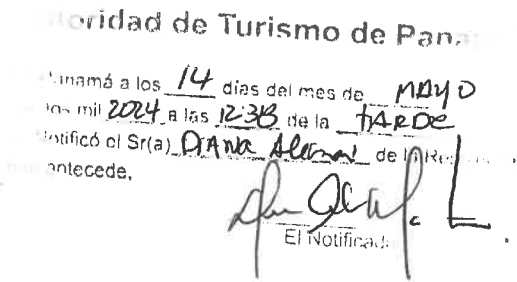 oridad de Turismo de Pana
anamá a los 14 días del mes de MAYO
dos mil 2024 a las 12:38 de la TARDE
otificó el Sr(a) DIANA Aleman de la Re
antecede.
El Notificad